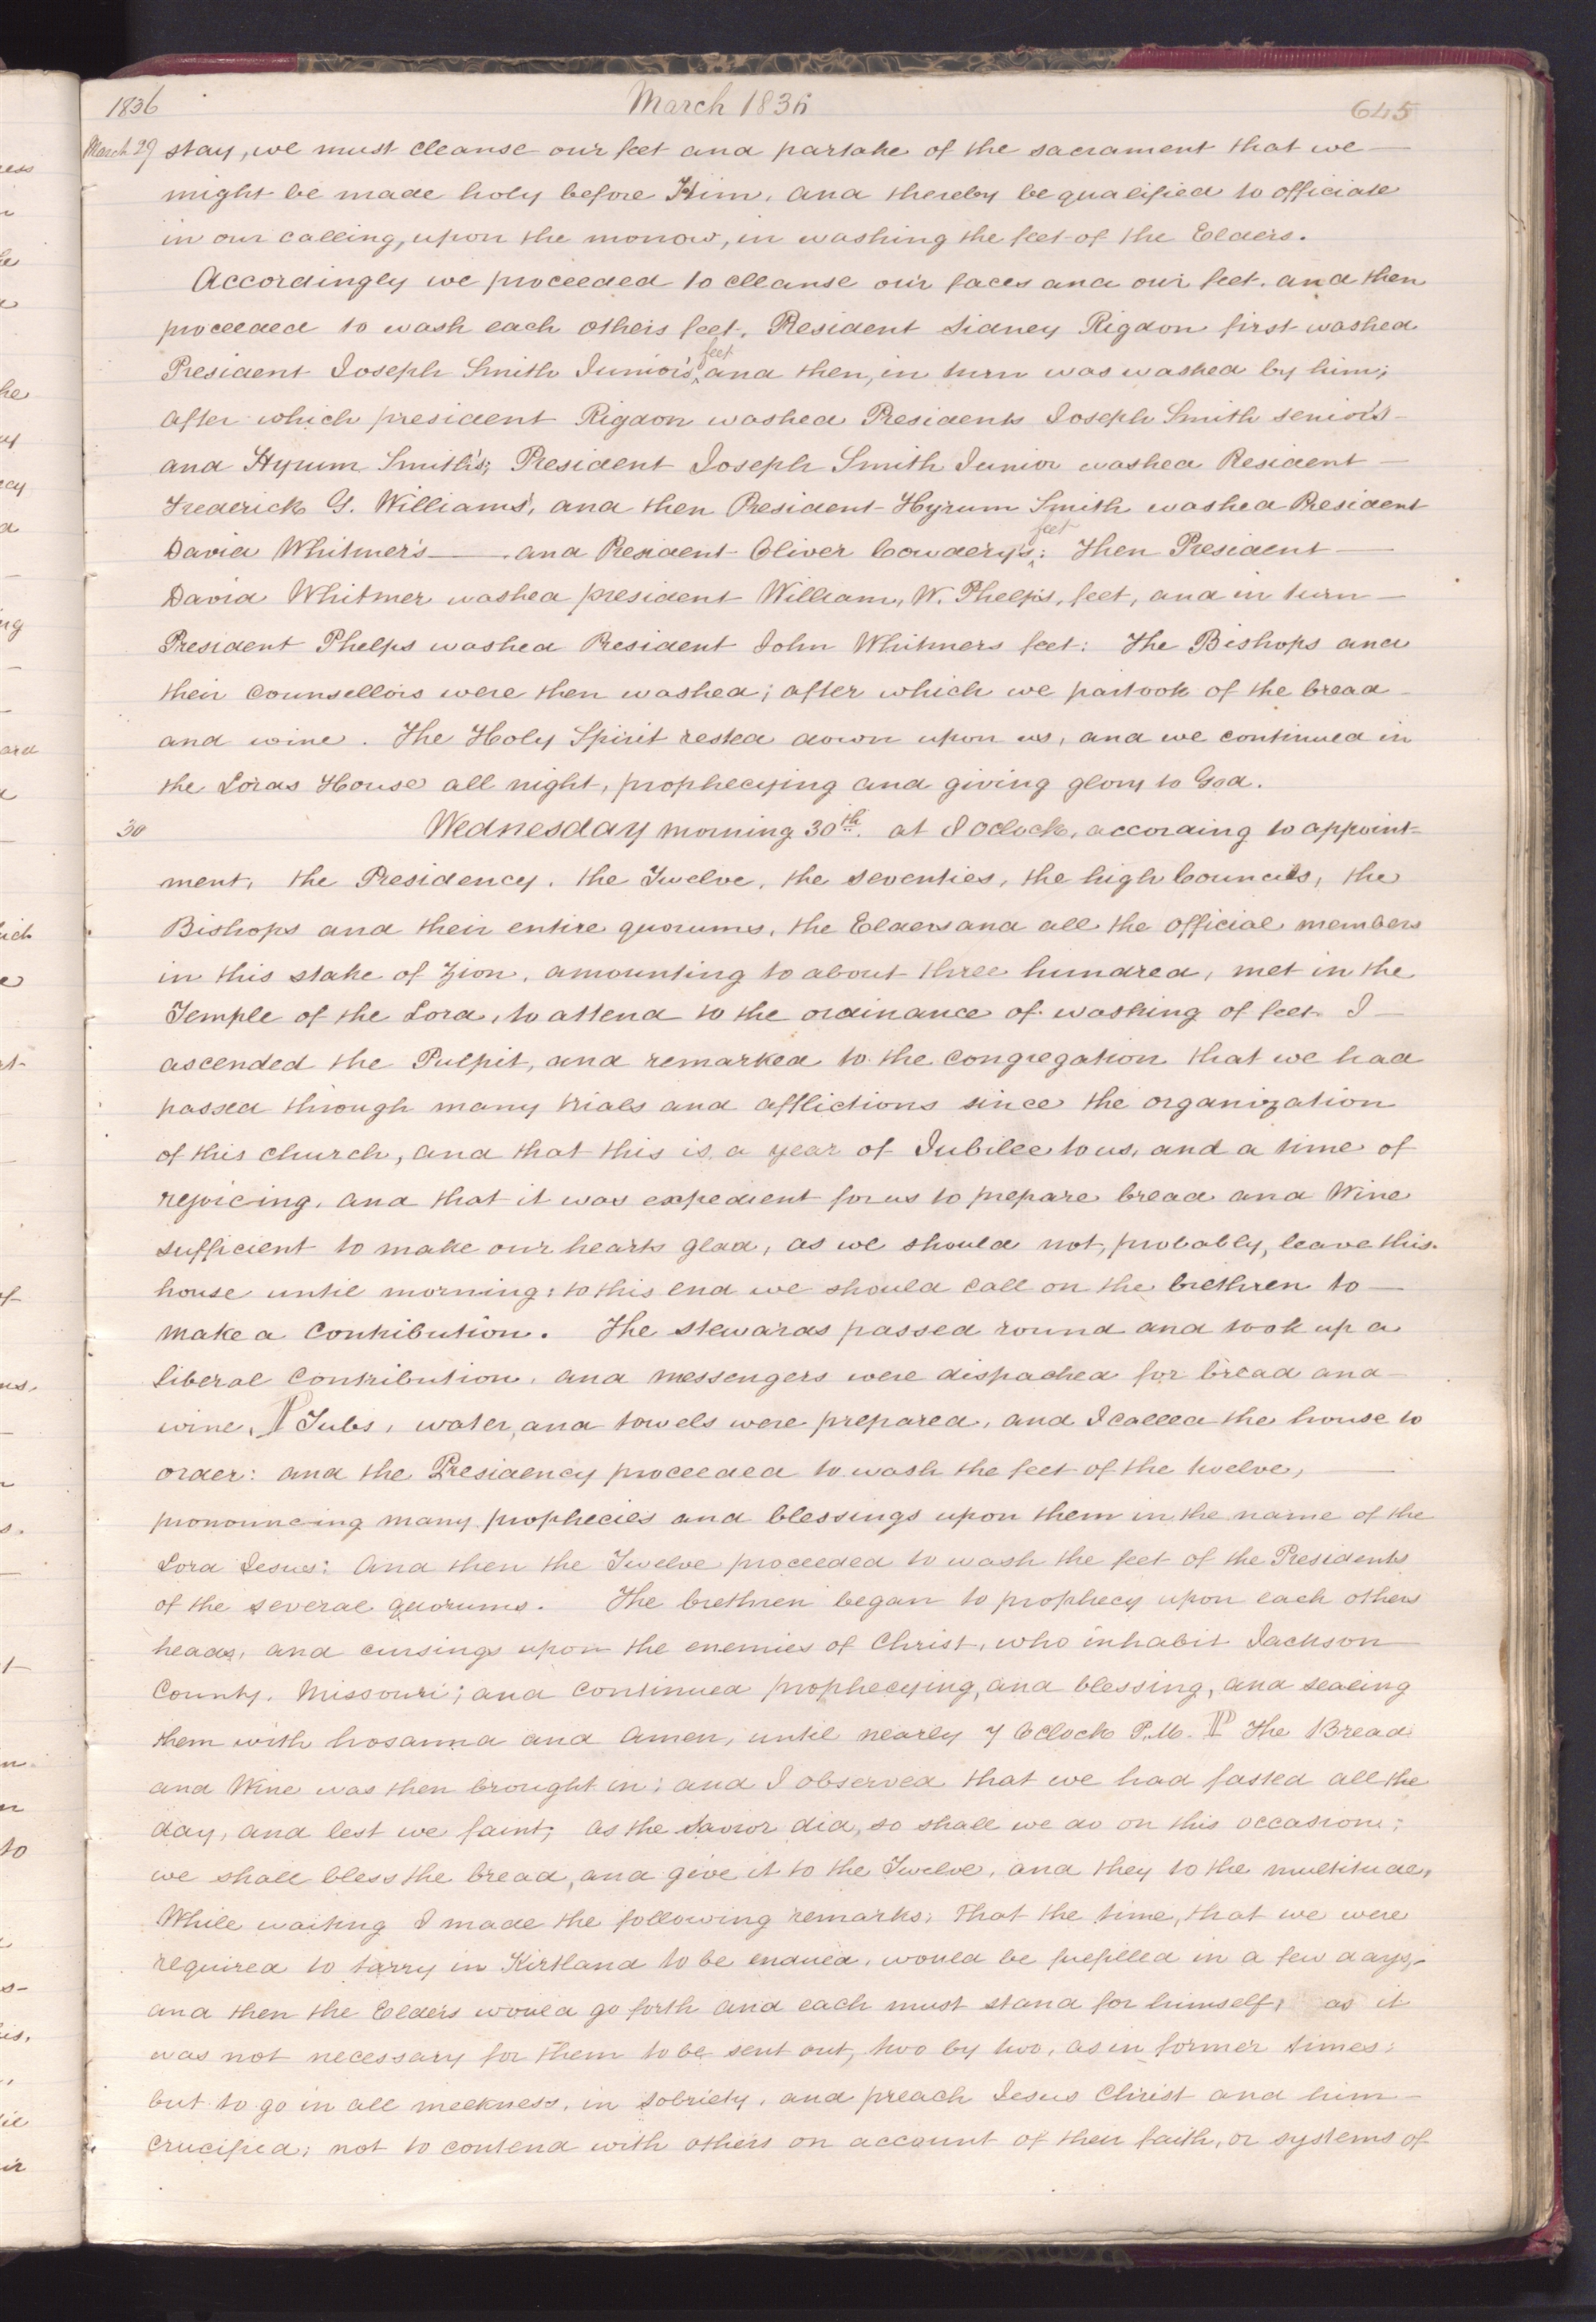 1836 March 1836 645
March 29 stay, we must cleanse our feet and partake of the sacrament that we
might be made holy before Him, and thereby be qualified to officiate
in our calling, upon the morrow, in washing the feet of the Elders.
Accordingly we proceeded to cleanse our faces and our feet, and then
proceeded to wash each others feet. President Sidney Rigdon first washed
feet
President Joseph Smith Junior's, and then, in turn was washed by him;
after which president Rigdon washed Presidents Joseph Smith senior's
and Hyrum Smith's; President Joseph Smith Junior washed President
Frederick G. Williams', and then President Hyrum Smith washed President
feet
David Whitmer's and President Oliver Cowdery's: Then President
David Whitmer washed president William, W. Phelps's, feet, and in turn
President Phelps washed President John Whitmers feet: The Bishops and
their counsellors were then washed; after which we partook of the bread
and wine. The Holy Spirit rested down upon us, and we continued in
the Lords House all night, prophecying and giving glory to God.
30 Wednesday morning 30th. at 8 Oclock, according to appoint=
ment, the Presidency, the Twelve, the seventies, the high Councils, the
Bishops and their entire quorums, the Elders and all the official members
in this stake of Zion, amounting to about three hundred, met in the
Temple of the Lord, to attend to the ordinance of washing of feet. I
ascended the Pulpit, and remarked to the congregation that we had
passed through many trials and afflictions since the organization
of this church, and that this is a year of Jubilee to us, and a time of
rejoicing, and that it was expedient for us to prepare bread and Wine
sufficient to make our hearts glad, as we should not, probably, leave this
house until morning: to this end we should call on the brethren to
make a contribution. The stewards passed round and took up a
liberal contribution, and messengers were dispached for bread and
wine, ¶ Tubs, water, and towels were prepared, and I called the house to
order: and the Presidency proceeded to wash the feet of the twelve,
pronouncing many prophecies and blessings upon them in the name of the
Lord Jesus: And then the Twelve proceeded to wash the feet of the Presidents
of the several quorums. The brethren began to prophecy upon each others
heads, and cursings upon the enemies of Christ, who inhabit Jackson
County, Missouri; and continued prophecying, and blessing, and sealing
them with hosanna and Amen, until nearly 7 Oclock P.M. ¶ The Bread
and Wine was then brought in; and I observed that we had fasted all the
day, and lest we faint; as the Savior did, so shall we do on this occasion;
we shall bless the bread, and give it to the Twelve, and they to the multitude,
While waiting I made the following remarks; That the time, that we were
required to tarry in Kirtland to be endued, would be fulfilled in a few days,
and then the Elders would go forth and each must stand for himself, as it
was not necessary for them to be sent out, two by two, as in former times:
but to go in all meekness, in sobriety, and preach Jesus Christ and him
crucified; not to contend with others on account of their faith, or systems of